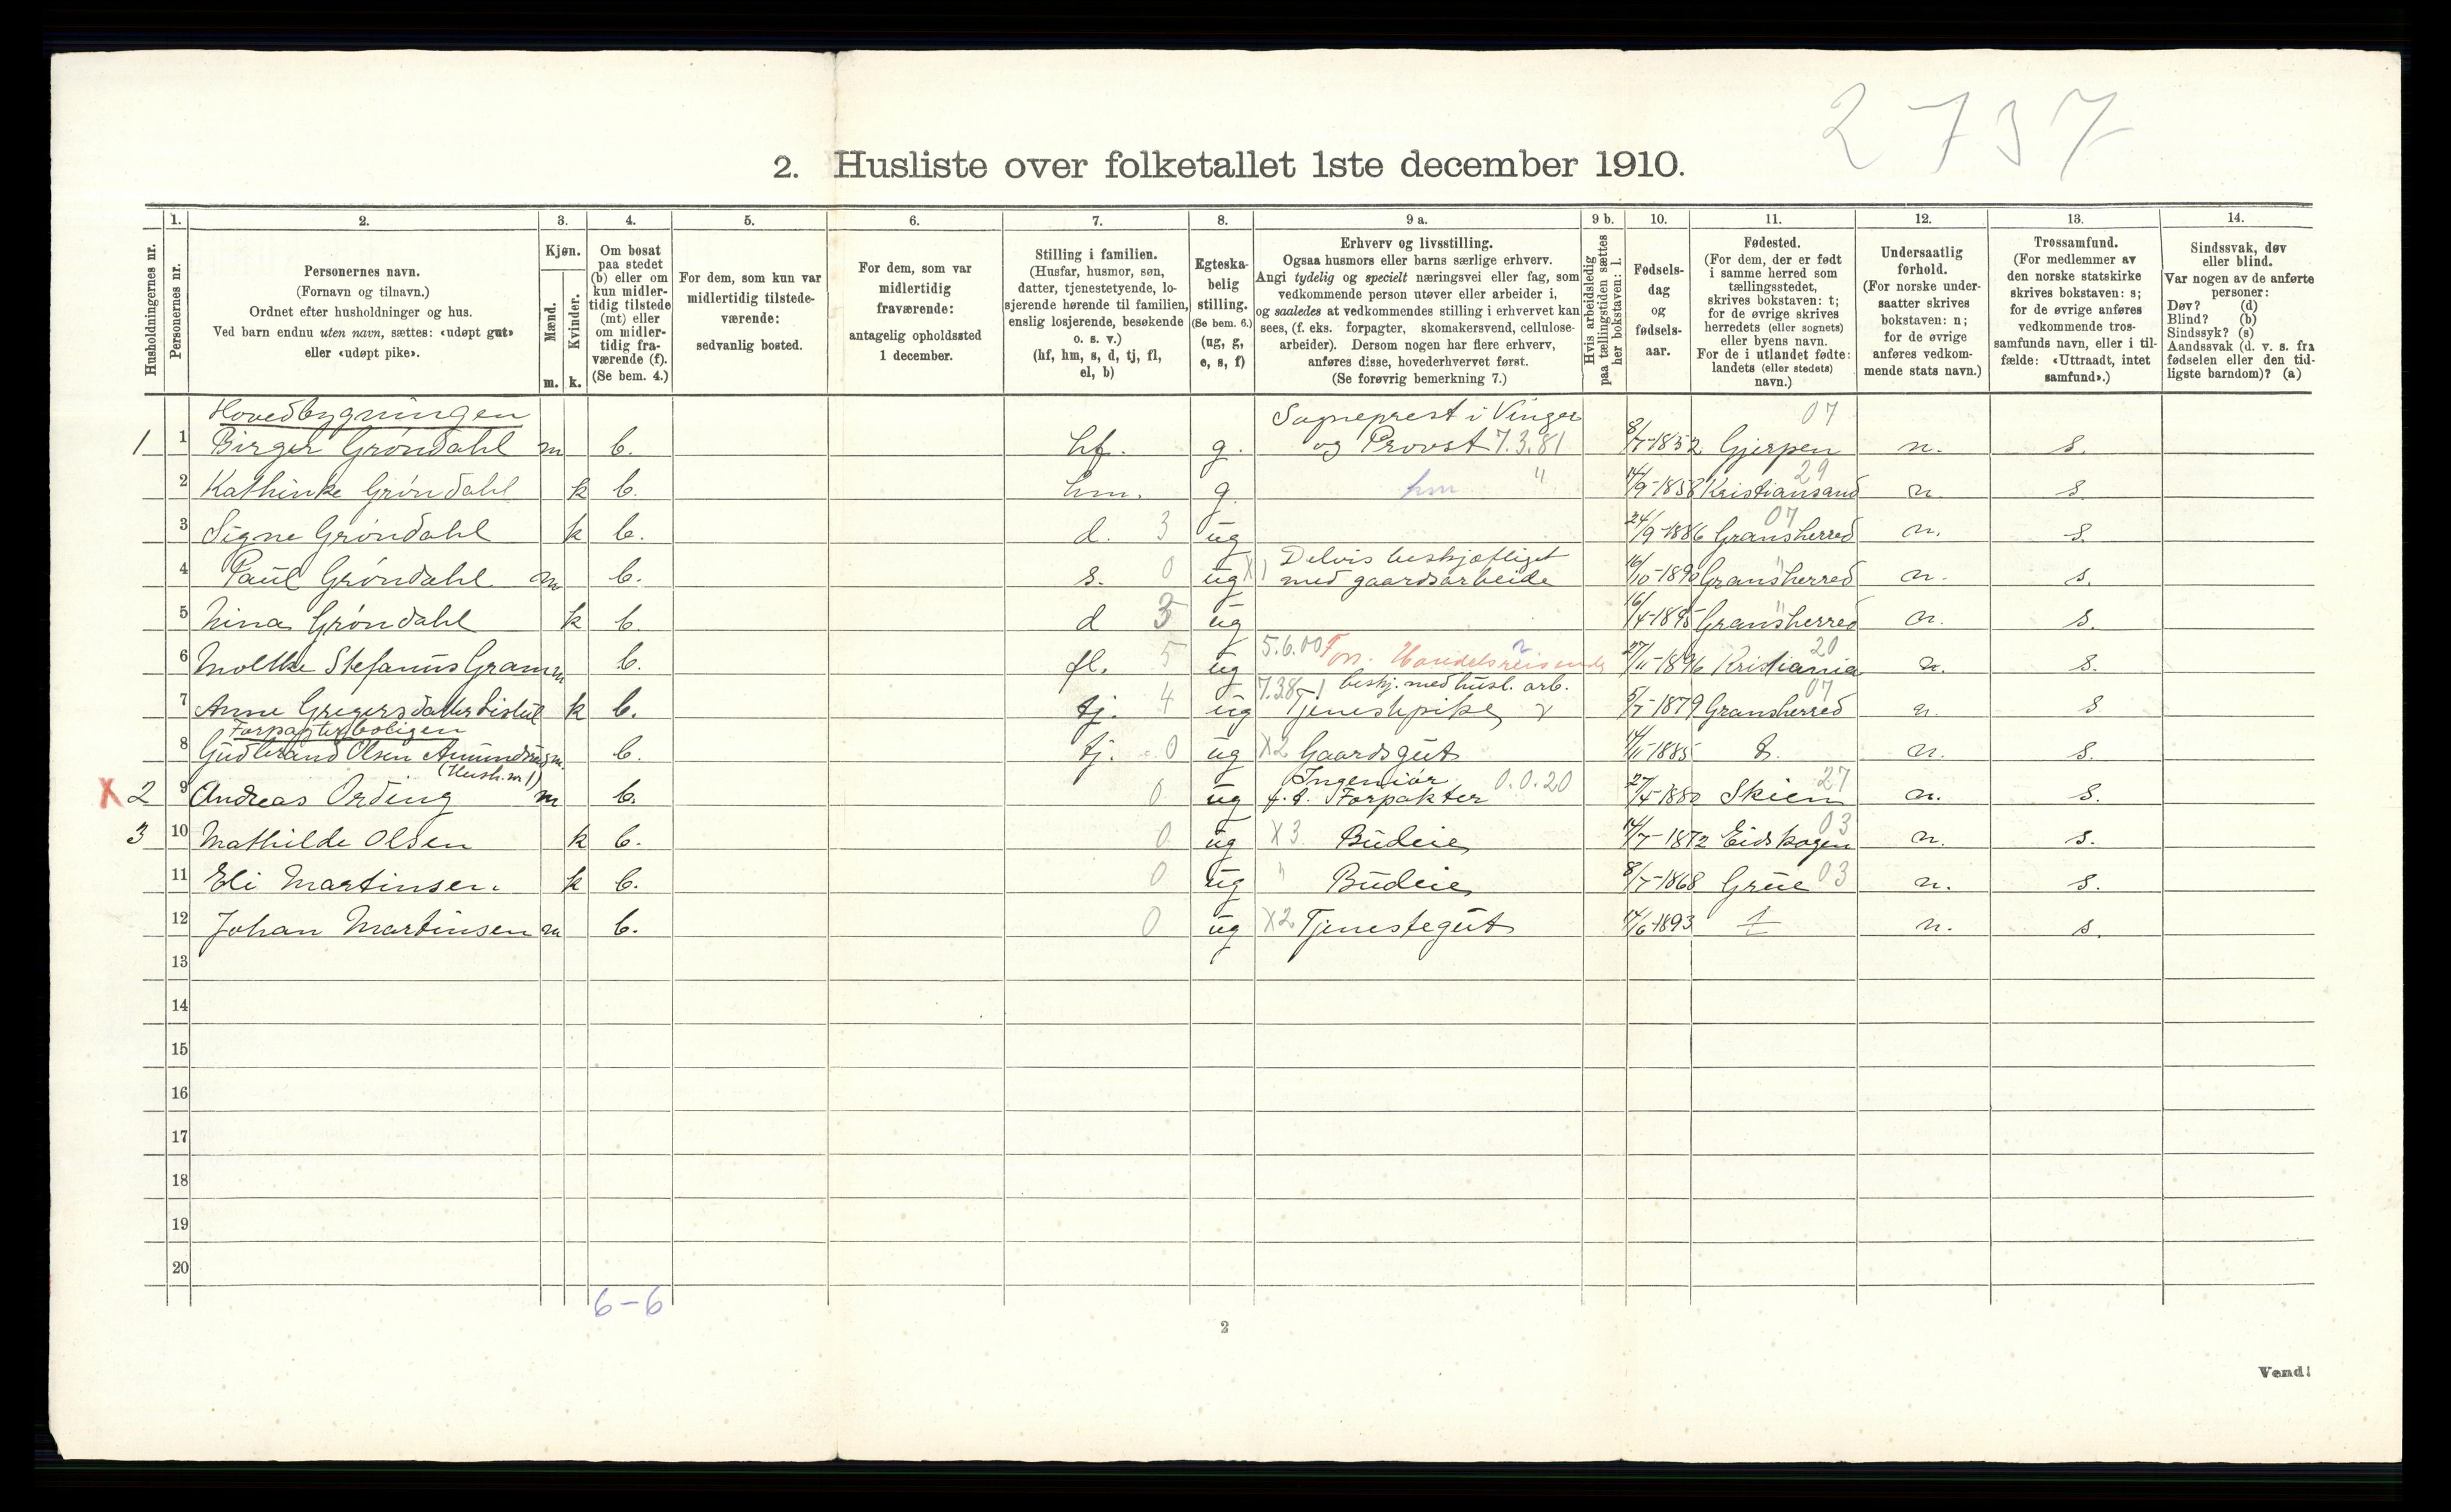 2737
2. Husliste over folketallet 1ste december 1910.
Husholdningernes nr.
1. Personernes nr.
2. Personernes navn. (Fornavn og tilnavn.) Ordnet efter husholdninger og hus. Ved barn endnu uten navn, sættes: «udøpt gut» eller «udøpt pike».
3. Kjøn. Mænd. m. Kvinder. k.
4. Om bosat paa stedet (b) eller om kun midlertidig tilstede (mt) eller om midlertidig fraværende (f). (Se bem. 4.)
5. For dem, som kun var midlertidig tilstedeværende: sedvanlig bosted.
6. For dem, som var midlertidig fraværende: antagelig opholdssted 1 december.
7. Stilling i familien. (Husfar, husmor, søn, datter, tjenestetyende, losjerende hørende til familien, enslig losjerende, besøkende o. s. v.) (hf, hm, s, d, tj, fl, el, b)
8. Egteskabelig stilling. (Se bem. 6.) (ug, g, e, s, f)
9 a. Erhverv og livsstilling. Ogsaa husmors eller barns særlige erhverv. Angi tydelig og specielt næringsvei eller fag, som vedkommende person utøver eller arbeider i, og saaledes at vedkommendes stilling i erhvervet kan sees, (f. eks. forpagter, skomakersvend, cellulosearbeider). Dersom nogen har flere erhverv, anføres disse, hovederhvervet først. (Se forøvrig bemerkning 7.)
9 b. Hvis arbeidsledig paa tællingstiden sættes her bokstaven: l.
10. Fødselsdag og fødselsaar.
11. Fødested. (For dem, der er født i samme herred som tællingsstedet, skrives bokstaven: t; for de øvrige skrives herredets (eller sognets) eller byens navn. For de i utlandet fødte: landets (eller stedets) navn.)
12. Undersaatlig forhold. (For norske undersaatter skrives bokstaven: n; for de øvrige anføres vedkommende stats navn.)
13. Trossamfund. (For medlemmer av den norske statskirke skrives bokstaven: s; for de øvrige anføres vedkommende trossamfunds navn, eller i tilfælde: «Uttraadt, intet samfund».)
14. Sindssvak, døv eller blind. Var nogen av de anførte personer: Døv? (d) Blind? (b) Sindssyk? (s) Aandssvak (d. v. s. fra fødselen eller den tidligste barndom)? (a)
Hovedbygningen
1 1 Birger Grøndahl m b. hf. g. Sogneprest i Vinger og Provst 7.3.81 8/7-1852 Gjerpen 07 n. s.
2 Kathinke Grøndahl k b. hm. g. hm " 14/9-1858 Kristiansand 29 n. s.
3 Signe Grøndahl k b. d. 3 ug 24/9-1886 Gransherred 07 n. s.
4 Paul Grøndahl m b. s. 0 ug X1 Delvis beskjæftiget med gaardsarbeide 16/10-1890 Gransherred " n. s.
5 Nina Grøndahl k b. d 3 ug 16/4-1895 Gransherred " n. s.
6 Moltke Stefanus Gram m b. fl. 5 ug 5.6.00 Fors. Handelsreisende 27/11-1896 Kristiania 20 n. s.
7 Anne Gregersdatter k b. tj. 4 ug 7.38 beskj. med husl. arb. Tjenestpike 5/7-1879 Gransherred 07 n. s
Forpagterboligen
8 Gudbrand Olsen Amundrud m. b. tj. 0 ug X2 Gaardsgut 14/11-1885 t. n. s.
(Hush. nr 1)
X 2 9 Andreas Ording m b. 0 ug Ingeniør f. t. Forpakter 0.0.20 27/4-1880 Skien 27 n. s.
3 10 Mathilde Olsen k b. 0 ug X3 Budeie 14/7-1872 Eidskogen 03 n. s.
11 Eli Martinsen. k b. 0 ug " Budeie 8/7-1868 Grue 03 n. s.
12 Johan Martinsen m b. 0 ug X2 Tjenestegut 14/6-1893 t n. s.
13
14
15
16
17
18
19
20
6-6
2
Vend!